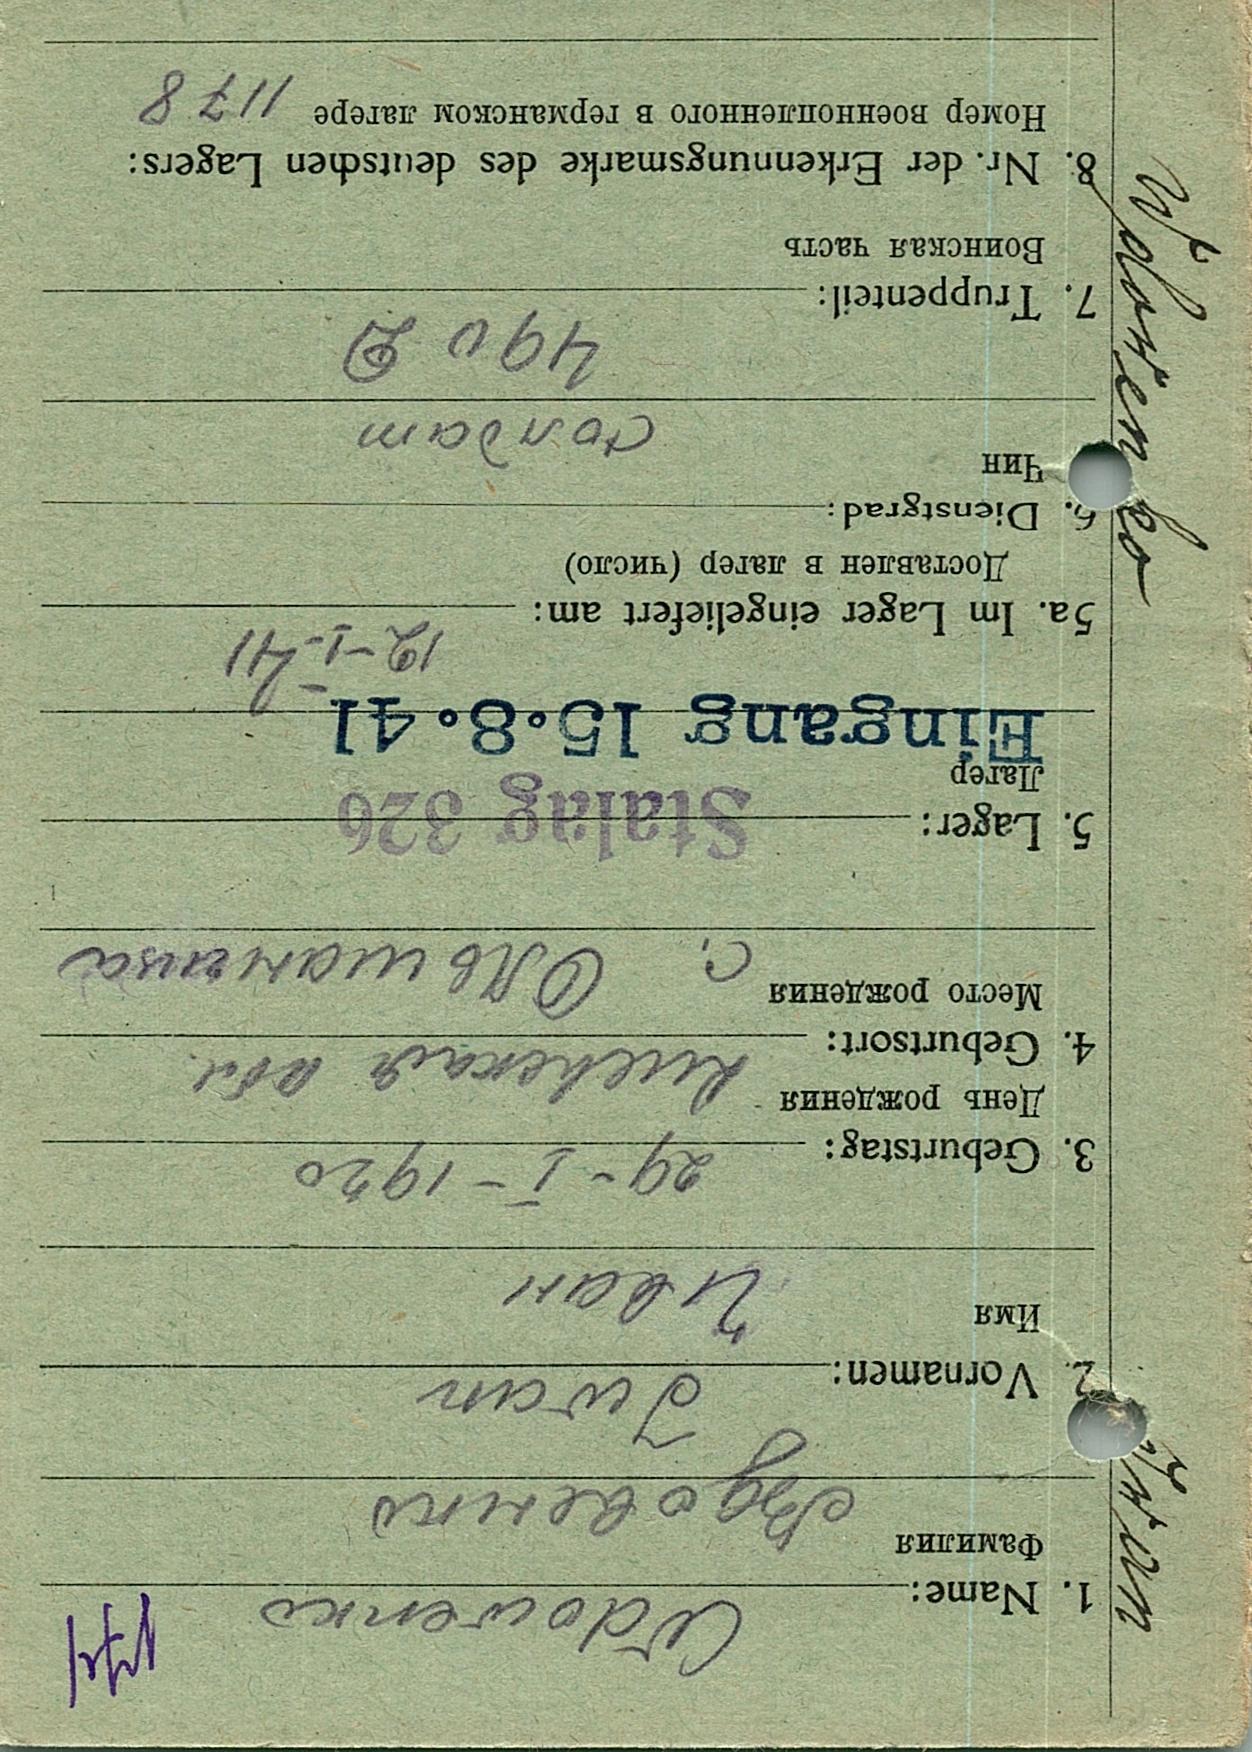 1. Name: Wdowenko
Фамилия Вдовенко
2. Vornamen: Iwan
Имя Иван
3. Geburtstag: 29-I-1920
День рождения Киевская обл.
4. Geburtsort:
Место рождения с. Ольшаница
5. Lager: Stalag 326
Лагер
Eingang 15.8.41
5a. Im Lager eingeliefert am: 12-I-41
Доставлен в лагер (число)
6. Dienstgrad:
Чин солдат
490 D
7. Truppenteil:
Воинская часть
8. Nr. der Erkennungsmarke des deutschen Lagers:
Номер военнопленного в германском лагере 1178